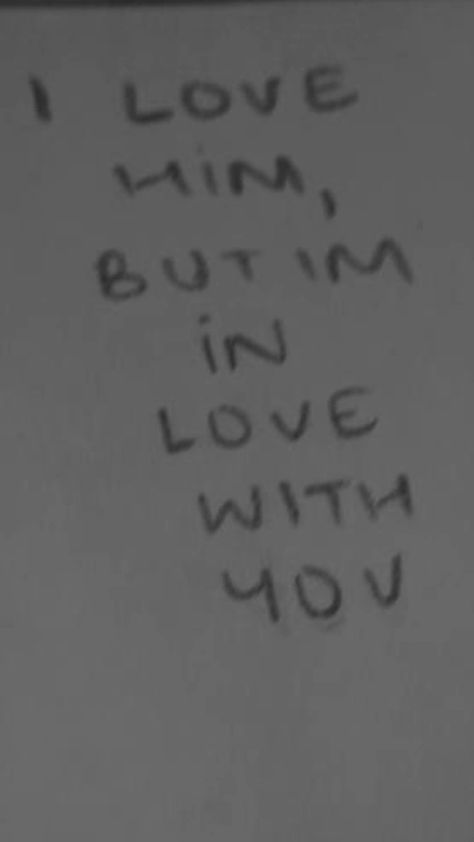 I LOVE
HiM,
BUT IM
iN
LOVE
WITH
YOU